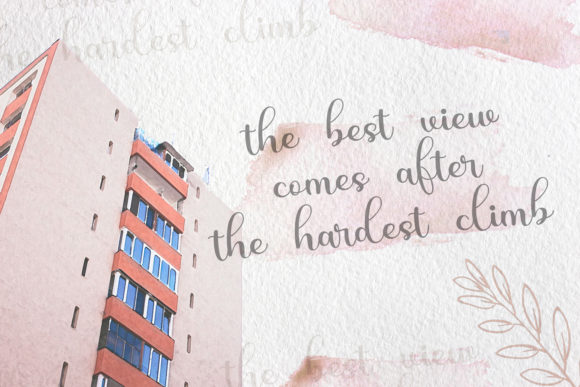 the hardest climb
the best view
comes after
the hardest climb
the best view